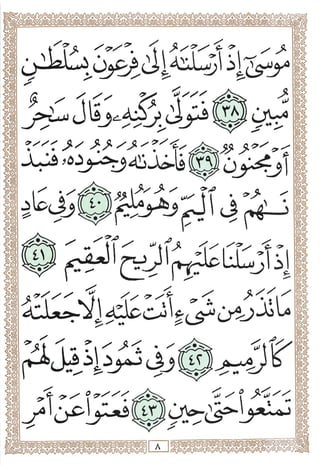 مُوسَىٰٓ إِذْ أَرْسَلْنَٰهُ إِلَىٰ فِرْعَوْنَ بِسُلْطَٰنٍ
مُّبِينٍ ٣٨ فَتَوَلَّىٰ بِرُكْنِهِۦ وَقَالَ سَٰحِرٌ
أَوْ مَجْنُونٌ ٣٩ فَأَخَذْنَٰهُ وَجُنُودَهُۥ فَنَبَذْ
نَٰهُمْ فِى ٱلْيَمِّ وَهُوَ مُلِيمٌ ٤٠ وَفِى عَادٍ
إِذْ أَرْسَلْنَا عَلَيْهِمُ ٱلرِّيحَ ٱلْعَقِيمَ ٤١
مَا تَذَرُ مِن شَىْءٍ أَتَتْ عَلَيْهِ إِلَّا جَعَلَتْهُ
كَٱلرَّمِيمِ ٤٢ وَفِى ثَمُودَ إِذْ قِيلَ لَهُمْ
تَمَتَّعُوا۟ حَتَّىٰ حِينٍ ٤٣ فَعَتَوْا۟ عَنْ أَمْرِ
٨